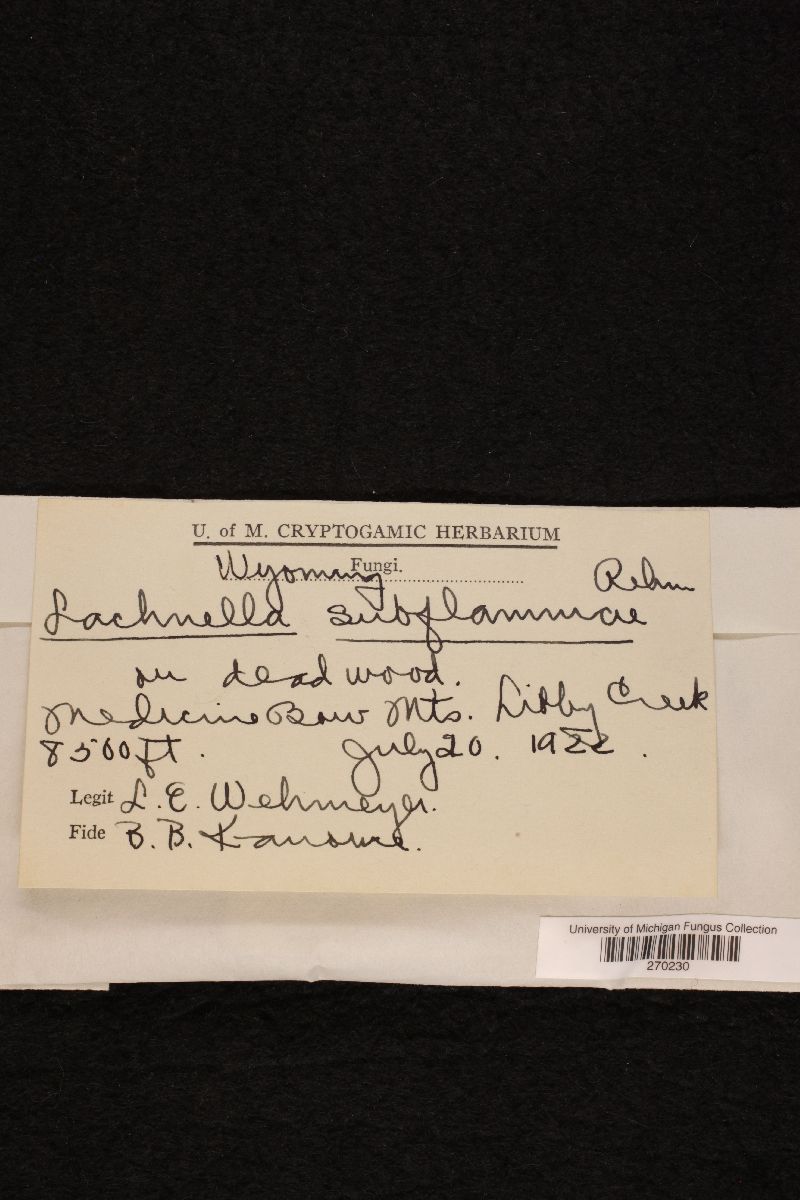 U. of M. CRYPTOGAMIC HERBARIUM
Wyoming Fungi.
Rehm
Lachnella subflammae
on dead wood.
Medicine Bow Mts. Libby Creek
8500 ft. July 20. 1922.
Legit L. E. Wehmeyer.
Fide B. B. Kanouse.
University of Michigan Fungus Collection
270230